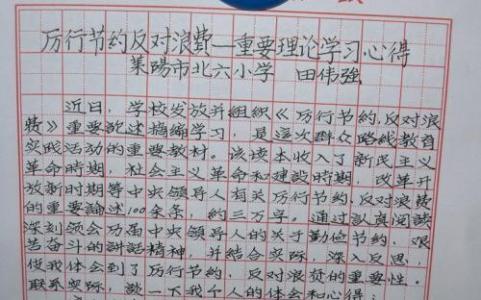 厉行节约反对浪费—重要理论学习心得
莱阳市北六小学 田伟强
近日，学校发放并组织《厉行节约，反对浪
费》重要论述摘编学习，是这次群众路线教育
实践活动的重要教材。该读本收入了新民主主义
革命时期，社会主义革命和建设时期，改革开
放新时期等中央领导人有关厉行节约，反对浪费
的重要论述100余条，约三万字。通过认真阅读
深刻领会历届中央领导人的关于勤俭节约、艰
苦奋斗的讲话精神，并结合实际，深入反思，
使我体会到了厉行节约，反对浪费的重要性。
联系实际，谈一下我个人的体会和心得。